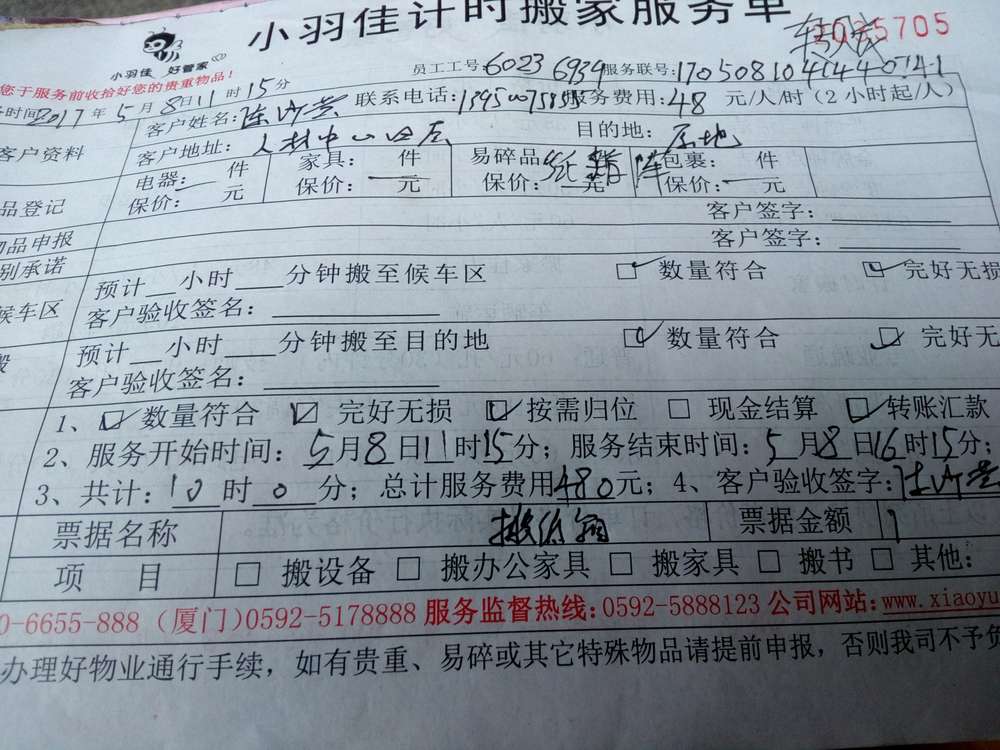 小羽佳计时搬家服务单
小羽佳 好管家
5705
您于服务前收拾好您的贵重物品!
员工工号: 6023 6934 服务联号: 1705081041440141
时间 2017年5月8日11时15分
客户姓名: 联系电话: 服务费用: 48 元/人/时(2小时起/人)
客户资料
客户地址: 目的地: 原地
电器: 件 家具: 件 易碎品 纸箱 包裹: 件
保价: 元 保价: 元 保价: 元 保价: 元
品登记
客户签字:
物品申报
客户签字:
别承诺
预计 小时 分钟搬至候车区 ☑ 数量符合 ☑ 完好无损
候车区
客户验收签名:
预计 小时 分钟搬至目的地 ☑ 数量符合 ☑ 完好无
搬
客户验收签名:
1、☑ 数量符合 ☑ 完好无损 ☑ 按需归位 ☐ 现金结算 ☑ 转账汇款
2、服务开始时间: 5月8日11时15分; 服务结束时间: 5月8日16时15分;
3、共计: 10时0分; 总计服务费用480元; 4、客户验收签字:
票据名称 票据金额
项 目 ☐ 搬设备 ☐ 搬办公家具 ☐ 搬家具 ☐ 搬书 ☐ 其他:
0-6655-888 (厦门)0592-5178888 服务监督热线:0592-5888123 公司网站:www.xiaoyu
办理好物业通行手续，如有贵重、易碎或其它特殊物品请提前申报，否则我司不予负